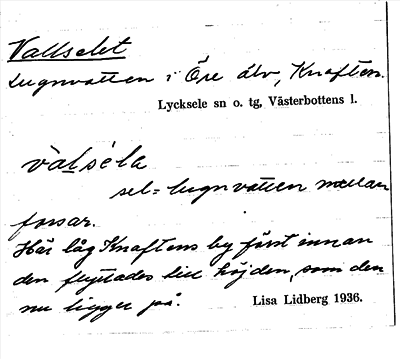 Vallselet
Lugnvatten i Öre älv, Knaften.
Lycksele sn o. tg, Västerbottens l.
vàlse̍la
sel = lugnvatten mellan
forsar.
Här låg Knaftens by först innan
den flyttades till höjden, som den
nu ligger på.
Lisa Lidberg 1936.